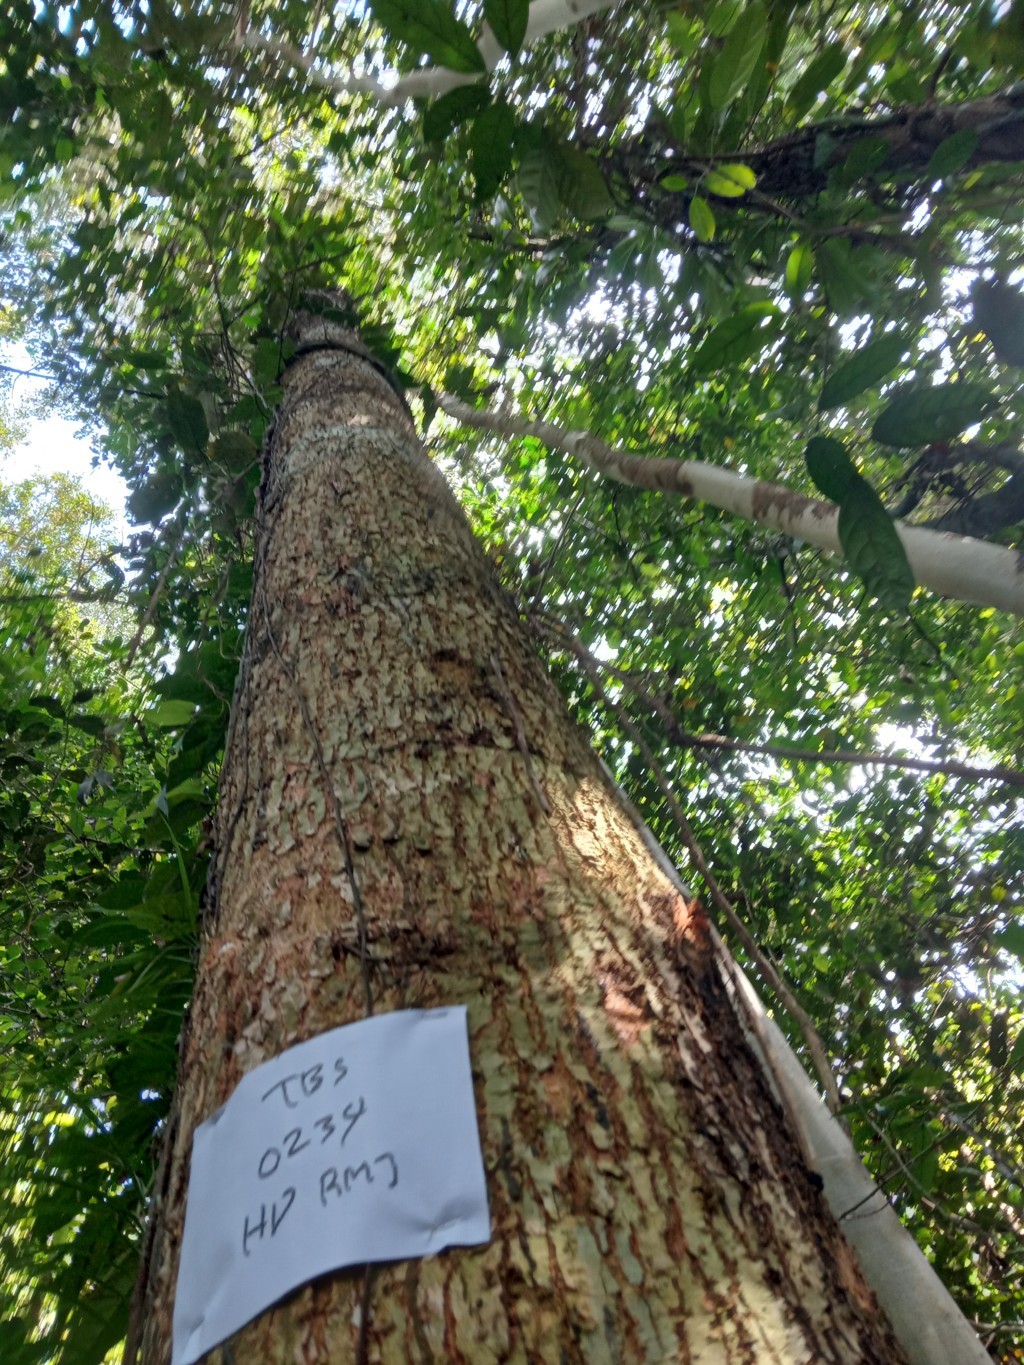 TBS
0234
HD RMJ